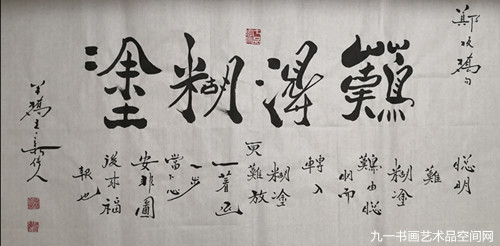 鄭板橋句
難得糊塗
聰明
難
糊塗
難由聰
明而
轉入
糊塗
更難放
一著退
一步
當下心
安非圖
後來福
報也
九一书画艺术品空间网